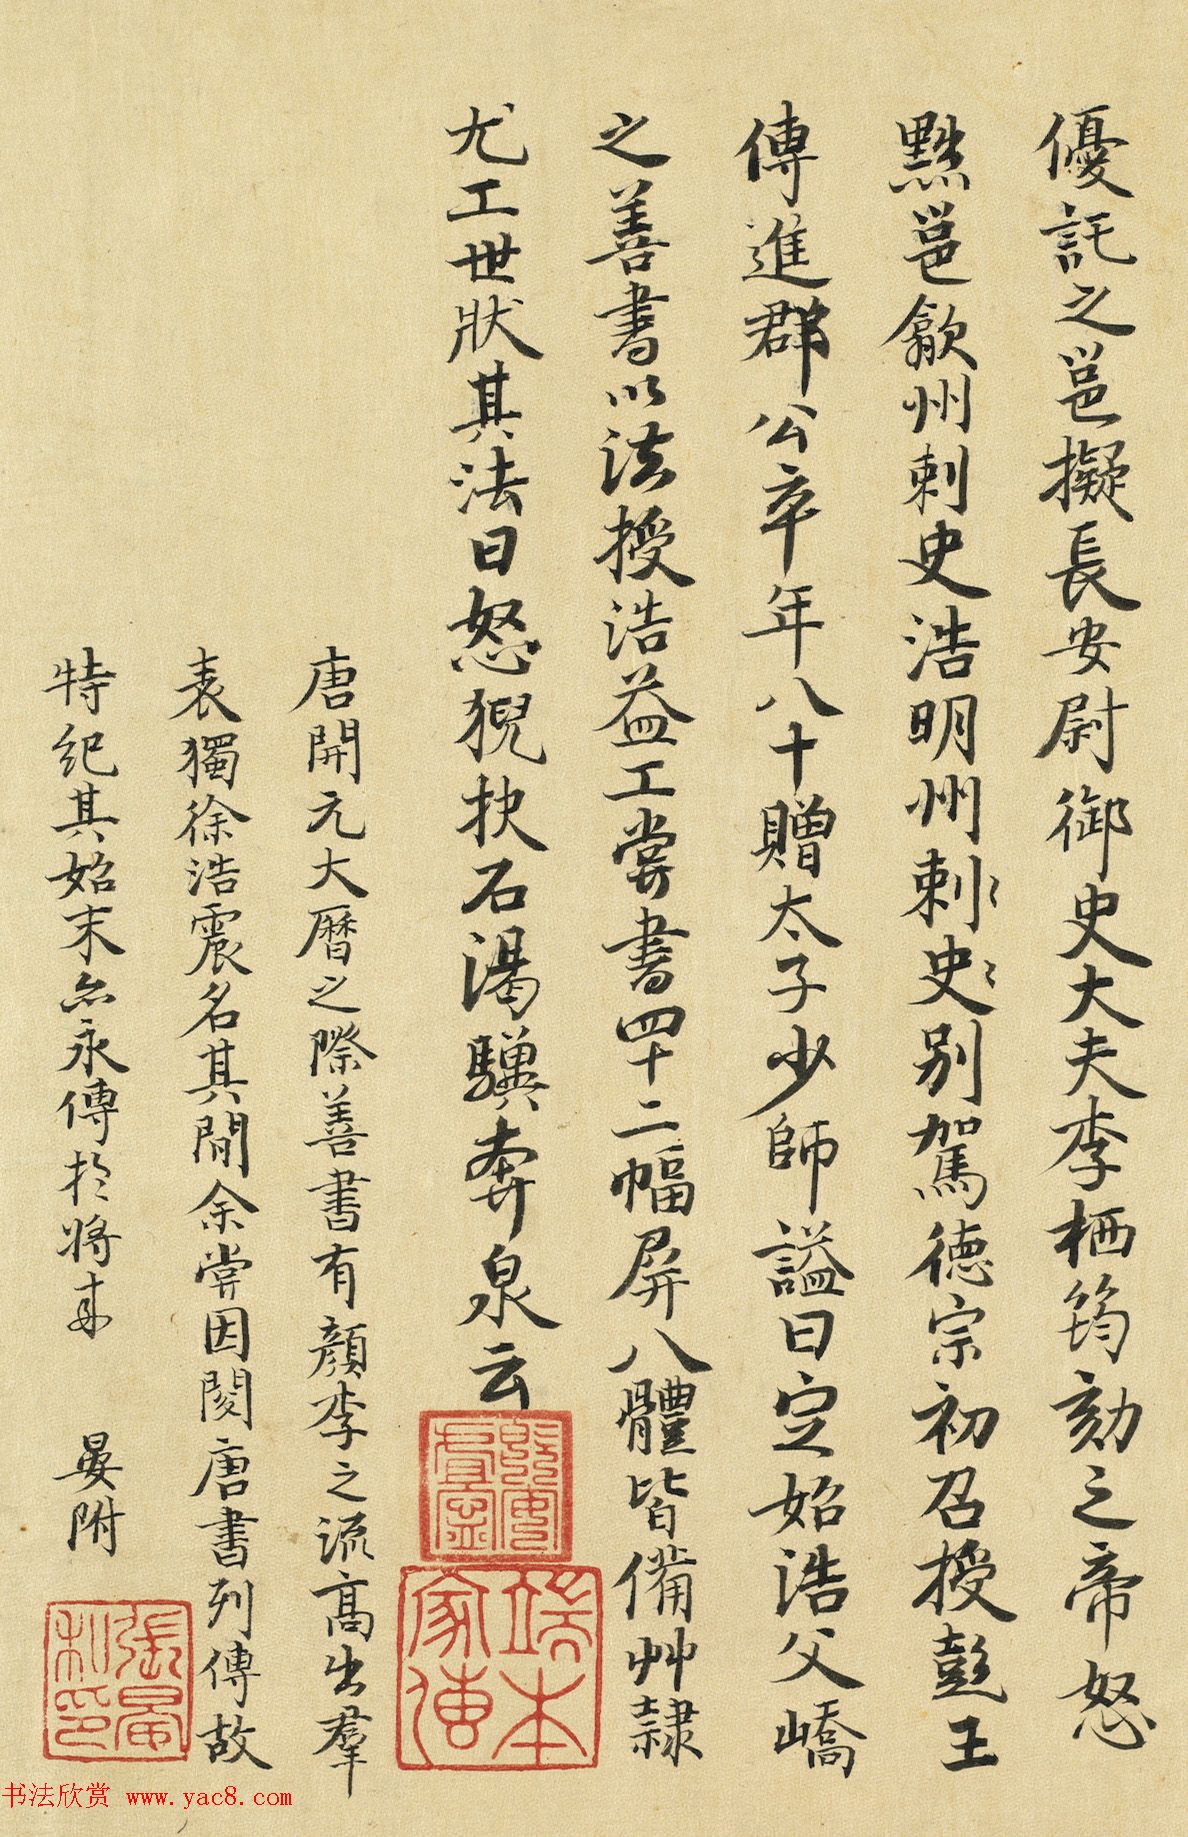 優託之邕擬長安尉御史大夫李栖筠劾之帝怒
黜邕歙州刺史浩明州刺史別駕德宗初召授彭王
傳進郡公卒年八十贈太子少師謚曰定始浩父嶠
之善書以法授浩益工嘗書四十二幅屏八體皆備艸隸
尤工世狀其法曰怒猊抉石渴驥奔泉云
唐開元大曆之際善書有顏李之流高出羣
表獨徐浩震名其間余嘗因閱唐書列傳故
特紀其始末亦永傳於將來 晏附
端本家傳
張晏私印
书法欣赏 www.yac8.com